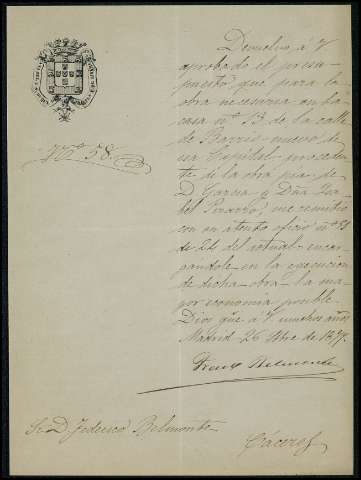 Devuelvo á V.
aprobado el presu-
puesto que para la
obra necesaria en la
casa nº 13 de la calle
de Barrio nuevo, de
esa Capital, proceden-
te de la obra pia de
D. Garcia y Dña Isa-
bel Pizarro, me remitió
con su atento oficio nº 51
de 24 del actual, encar-
gandole en la ejecucion
de dicha obra la ma-
yor economia posible.
Dios gue á V. muchos años
Madrid 26 de 1879.
Belmonte
Nº 58.
Sr. D. Federico Belmonte.
Cáceres